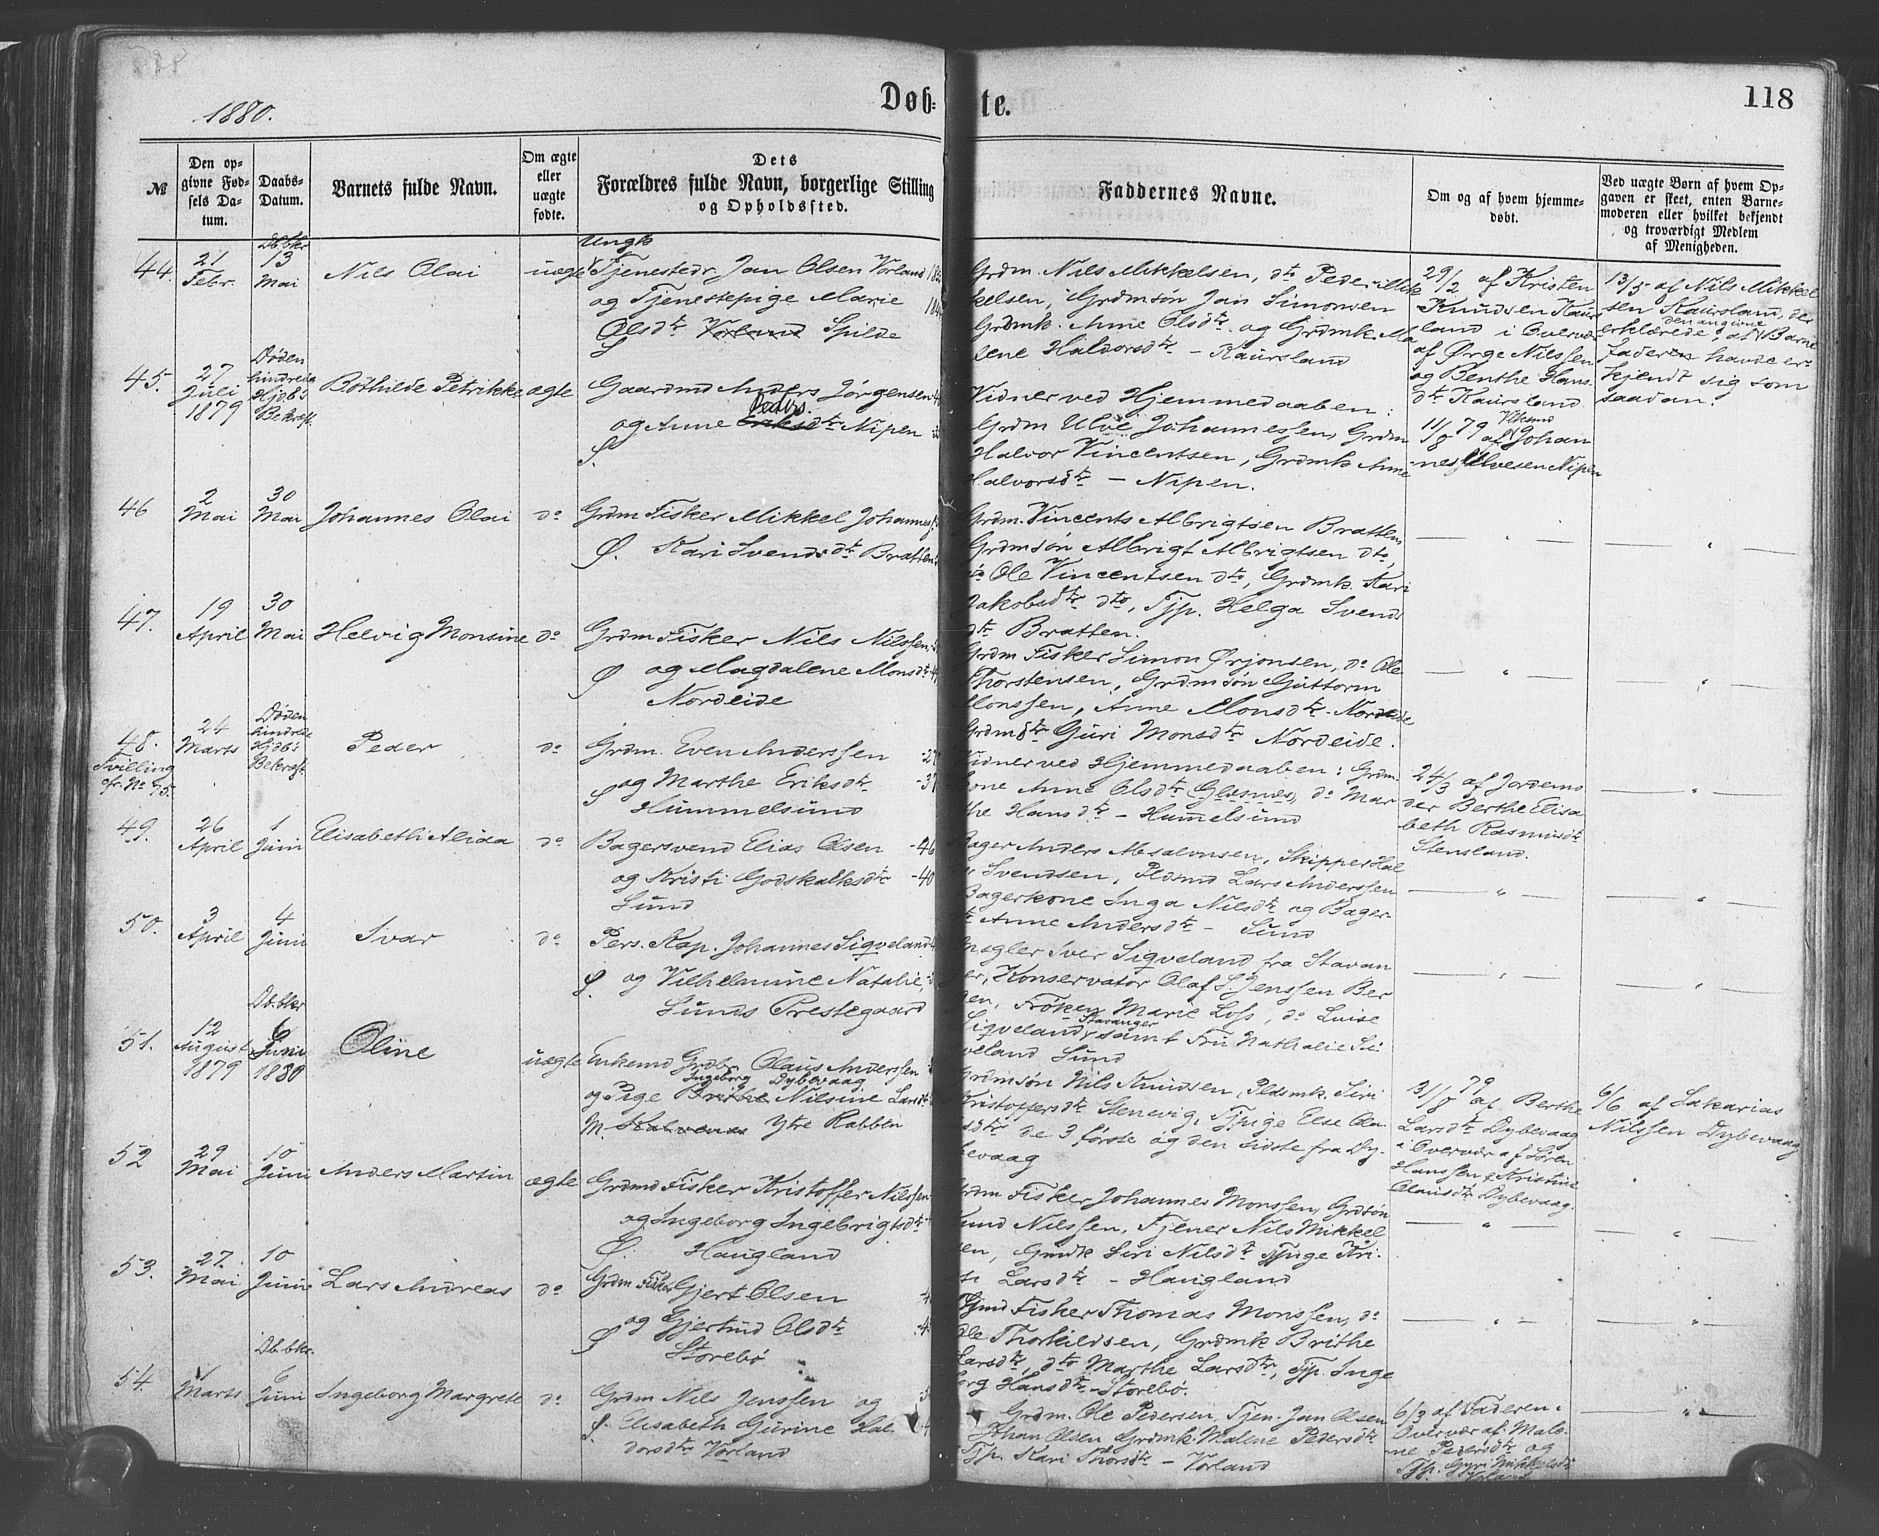 1880.
Døb-
te.
118
№
Den op-
givne Fød-
sels Da-
tum.
Daabs-
Datum.
Barnets fulde Navn.
Om ægte
eller
uægte
fødte.
Dets
Forældres fulde Navn, borgerlige Stilling
og Opholdssted.
Faddernes Navne.
Om og af hvem hjemme-
døbt.
Ved uægte Børn af hvem Op-
gaven er skeet, enten Barne-
moderen eller hvilket bekjendt
og troværdigt Medlem
af Menigheden.
44.
21
Febr.
Db. bkr
13
Mai
Nils Olai
uægte
Ungk
Tjenestedr. Jan Olsen Vorland
og Tjenestepige Marie
Olsdtr Vorland Spilde
Grdm. Nils Mikkelsen, dto Peder Mik
kelsen, Grdmsøn Jan Simonsen
Grdmk. Anne Olsdtr og Grdmk. Ma
lene Haldorsdtr - Kaursland
29/2 af Kristen
Knudsen Kaurs
land i Overvær
af Ørge Nilssen
og Benthe Hans
dtr Kaursland
13/5 af Nils Mikkel
sen Kaursland, der
erklærede, at den angivne Barne
fader havde er-
kjendt sig som
saadan.
45.
27
Juli
1879
Døden
hindrede
Hjdbs
Bekræft.
Bothilde Petrikke
ægte
Gaardmd Anders Jørgensen
Peders.
og Anne Eriksdtr Nipen
Vidner ved Hjemmedaaben:
Grdm Ulve Johannessen, Grdm
Halvor Vincentsen, Grdmk Anne
Halvorsdtr - Nipen.
11/8 79 af Johan
nes Ulvesen Nipen
46
2
Mai
30
Mai
Johannes Olai
do
Grdm Fisker Mikkel Johannes
Ø. Kari Svendsdtr Bratten
Grdm. Vincents Albrigtsen Bratten
Grdmsøn Albrigt Albrigtsen dto,
do Ole Vincentsen dto, Grdmk. Kari
Jakobsdtr dto, Tjp. Helga Svends
dtr Bratten.
47.
19
April
30
Mai
Helvig Monsine
do
Grdm Fisker Nils Nilssen
Ø og Magdalene Monsdtr
Nordeide
Grdm Fisker Simon Ørjonsen, do Ole
Thorstensen, Grdmsøn Guttorm
Monssen, Anne Monsdtr Nordeide
Grdmdtr Guri Monsdtr Nordeide.
48.
Tvilling
cfr. No 95.
24
Marts
Døden
hindrede
Hjdbs
Bekræft
Peder
do
Grdm. Even Anderssen -27
og Marthe Eriksdtr -37
Hummelsund
Vidner ved Hjemmedaaben: Grdm-
kone Anne Olsdtr Glesnes, do Mar
the Hansdtr - Hummelsund
24/3 af Jordemo
der Berthe Elisa
beth Rasmusdtr
Stensland.
49.
26
April
1
Juni
Elisabeth Alida
do
Bagersvend Elias Olsen -46
og Kristi Godskalksdtr -40
Sund
Bager Anders Absalonsen, Skipper Hal
Svendsen, Pldsmd Lars Anderssen
Bagerkone Inga Nilsdtr og Bager-
Anne Andersdtr - Sund
50.
3
April
4
Juni
Ivar
do
Pers. Kap. Johannes Sigveland
Ø. og Vilhelmine Natalie,
Sunds Prestegaard
Mægler Iver Sigveland fra Stavan
er, Konservator Olaf S. Jenssen Ber
gen, Frøken Marie Loss, do Luise
Sigveland, Stavanger samt Fru Nathalie Si
veland Sund
51.
12
August
1879
Db. bkr
6
Juni
1880
Oline
uægte
Enkemd Grdbr. Olaus Anderssen
Ingeborg Dybevaag
og Pige Berthe Nilsine Larsdtr
M. Kalvenes Ytre Rabben
Grdmsøn Nils Knudsen, Pldsmk. Siri
Kristoffersdtr Stenevig, Tjpige Else Ola
sdtr de 3 første og den sidste fra Dy-
bevaag
31/8 79 af Berthe
Larsdtr Dybevaag
i Overvær af Søren
Hanssen & Kristine
Olausdtr Dybevaag.
6/6 af Sakarias
Nilssen Dybevaag
52
29
Mai
10
Juni
Anders Martin
ægte
Grdmd Fisker Kristoffer Nilssen
og Ingeborg Ingebrigtsdtr
Ø. Haugland
Grdm Fisker Johannes Monssen, Grdsøn
Knud Nilssen, Tjener Nils Mikkel
sen, Grmk Siri Nilsdtr Tjpige Kri-
sti Larsdtr - Haugland
53.
27.
Mai
10
Juni
Lars Andreas
do
Grdm Fisker Gjert Olsen
og Gjertrud Olsdtr
Ø Storebø
Grdmd Fisker Thomas Monssen, do
Ole Thorkildsen, Grdmk Brithe
Larsdtr, dto Marthe Larsdtr, Tjp. Inge
borg Hansdtr - Storebø.
54.
Marts
Db. bkr.
6
Juni
Ingeborg Margrete
do
Grdm Nils Jenssen og
Ø. Elisabeth Gurine Hal
dorsdtr Vorland
Grdm. Ole Pedersen, Tjen. Jan Olsen
Johan Olsen Grdmk. Malene Pedersdtr
Tjp. Kari Thorsdtr - Vorland
6/3 af Faderen i
Overvær af Male
ne Pedersdtr og
Tjp. Guri Mikkelsdtr
Vorland